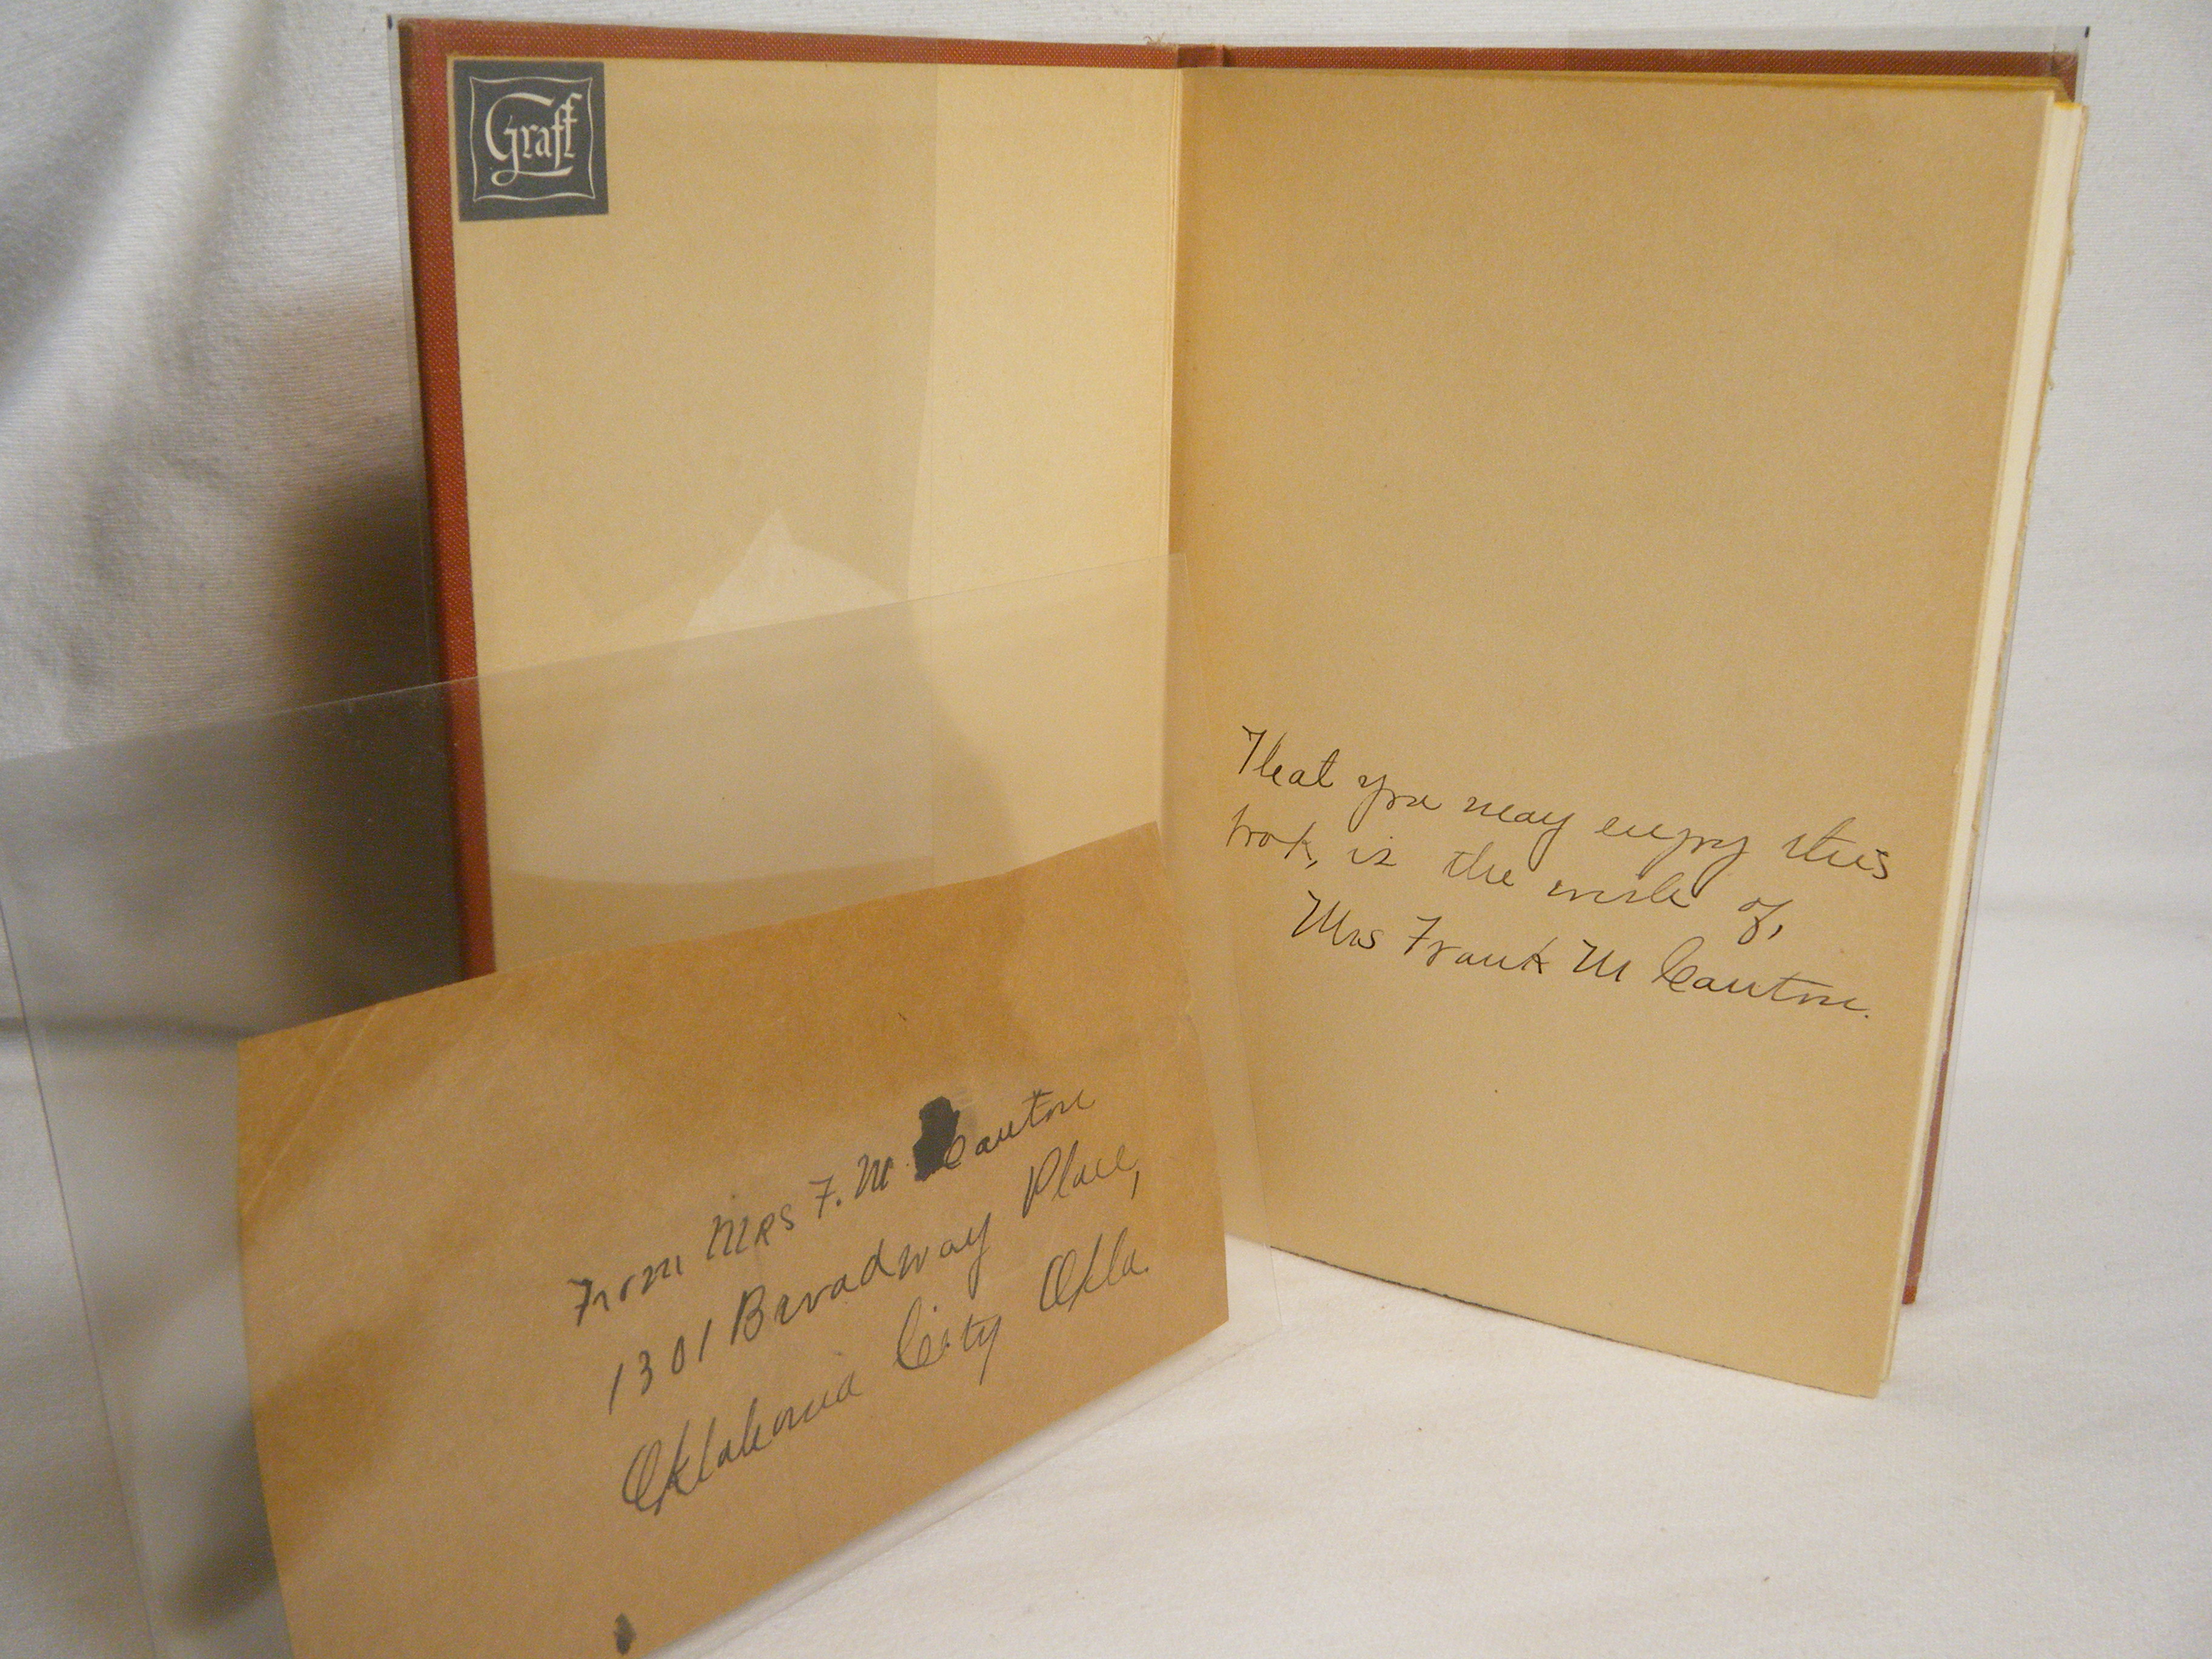 Graff
That you may enjoy this
book, is the wish of,
Mrs Frank M Canton.
From MRS F. M Canton
1301 Broadway Place,
Oklahoma City Okla.